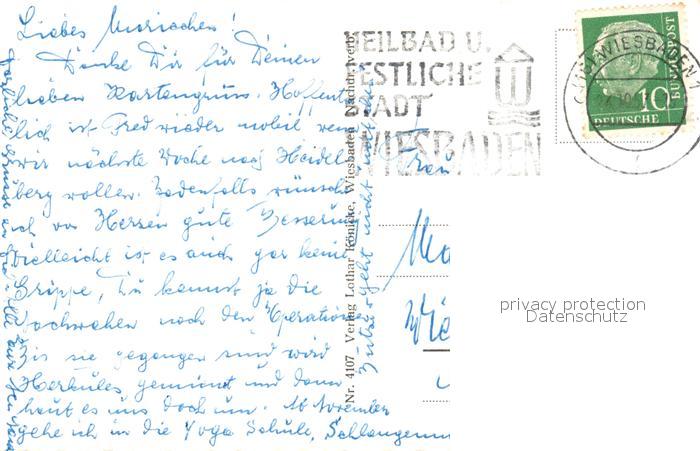 Liebes Mariechen!
Danke Dir für Deinen
lieben Kartengruss. Hoffent
lich ist Fred wieder mobil wenn
wir nächste Woche nach Heidel
berg wollen. Jedenfalls wünsche
ich von Herzen gute Besserung
Vielleicht ist es auch gar keine
Grippe, Du kannst ja die
Nachwehen nach den Operation
Bis sie gegangen sind wird
Herkules gemimt und dann
haut es uns doch um. Ab November
gehe ich in die Yoga Schule,
Nr. 4107 Verlag Lothar Könicke, Wiesbaden Nachdr. verb.
HEILBAD U.
FESTLICHE
STADT
WIESBADEN
WIESBADEN 1
10
DEUTSCHE
BUNDESPOST
Frau
privacy protection
Datenschutz